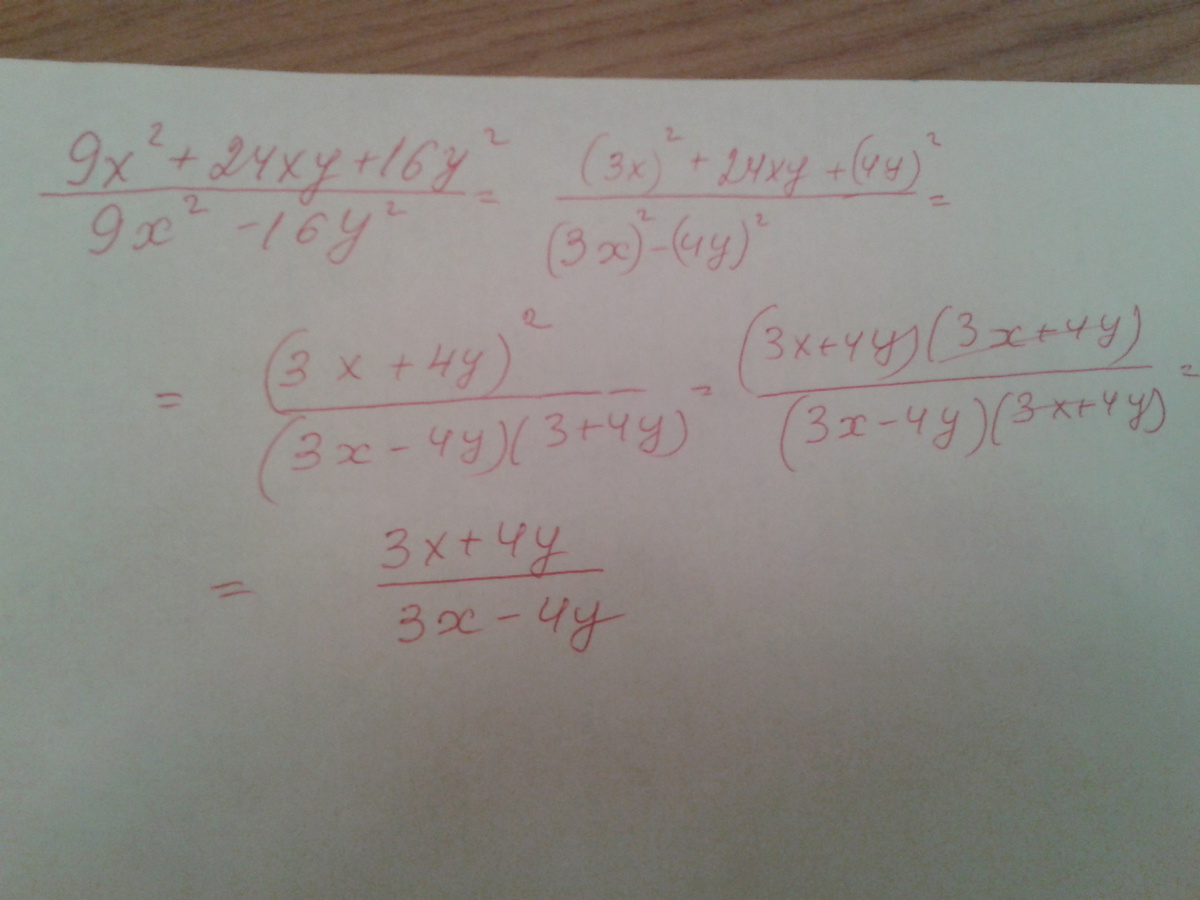 9x² + 24xy + 16y² / 9x² - 16y² = (3x)² + 24xy + (4y)² / (3x)² - (4y)² =
= (3x + 4y)² / (3x - 4y)(3 + 4y) = (3x + 4y)(3x + 4y) / (3x - 4y)(3x + 4y) =
= 3x + 4y / 3x - 4y